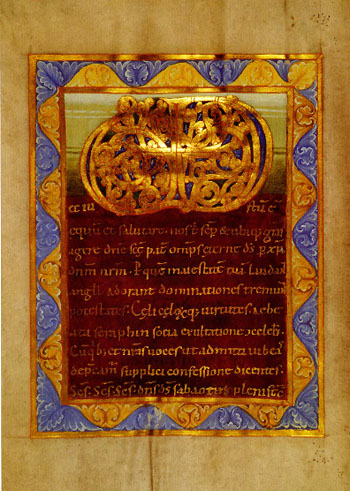 ec iu stū ē
equū et salutare. nos t sēp & ubiq; grās
agere dn̄e sc̄e pat̄ omp̄s eterne ds̄ p xp̄m
dn̄m nr̄m. P quē maiestatē tuā laudant
angli adorant dominationes tremunt
potestates. Celi celoꝝq; virtutes. ac be
ata seraphin socia exultatione ccelebr̄.
Cū qb; et nr̄as uoces ut admitti iubeas
dep̄camur supplici confessione dicentes.
Sc̄s. Sc̄s. Sc̄s. dn̄s ds̄ sabaoth pleni st̄ ce